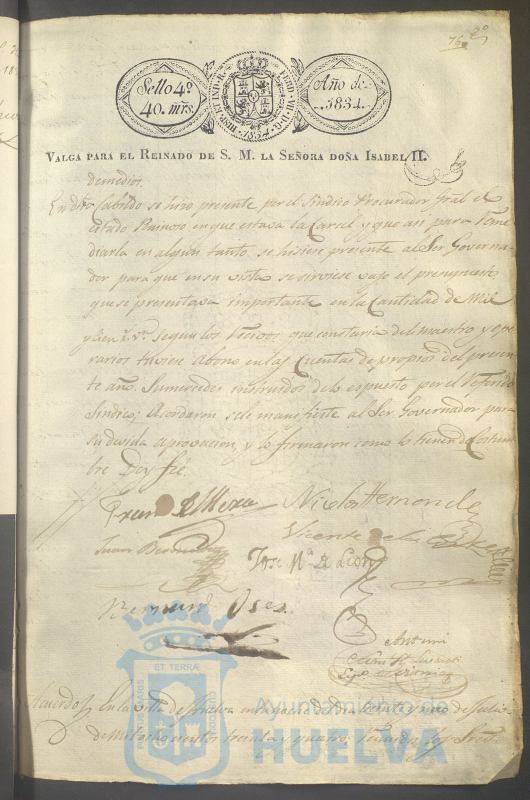 76
Sello 4º
40. mrs.
HISP. ET IND. R. FERD. VII. D. G.
1834
Año de
1834.
VALGA PARA EL REINADO DE S. M. LA SEÑORA DOÑA ISABEL II.
demedios.
En dho Cavildo se hizo presente por el Sindico Procurador gral el
estado Ruinoso en que estava la Carsel y que asi para reme
diarla en algun tanto se hisiese presente al Sor Governa
dor para que en su vista se sirviese bajo el presupuesto
que se presentava importante en la Cantidad de Mil
y Cien rs. vn. segun los recivos que constaria del maestro y ope
rarios tuviese Abono en las Cuentas de propios del presen
te año. Sus mercedes instruidos de lo espuesto por el referido
Sindico; Acordaron se le manifieste al Sor Governador para
su devida aprovacion, y lo firmaron como lo tienen de Costum
bre Doy fé.
Nicolas Hernandez
Vicente de la
Juan
Jose Mª de Leon
Oses
Antemi
Acuerdo En la Villa de Huelva en de Julio
de Mil ochocientos treinta y quatro
ET TERRÆ
PORTUS MARIS
CUSTODIA
Ayuntamiento de
HUELVA